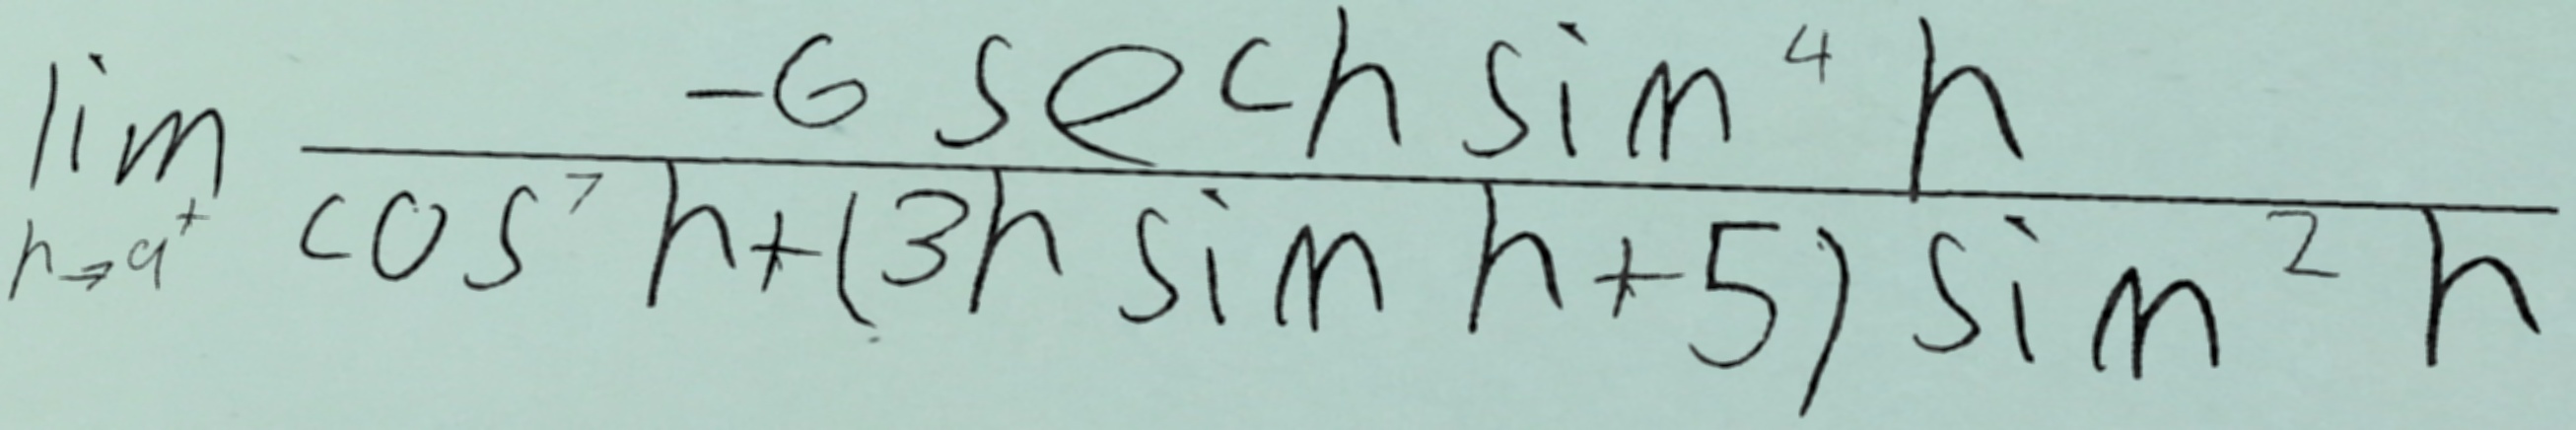 \lim_{h \to a^+} \frac{-6 \sec h \sin^4 h}{\cos^7 h + (3h \sin h + 5) \sin^2 h}